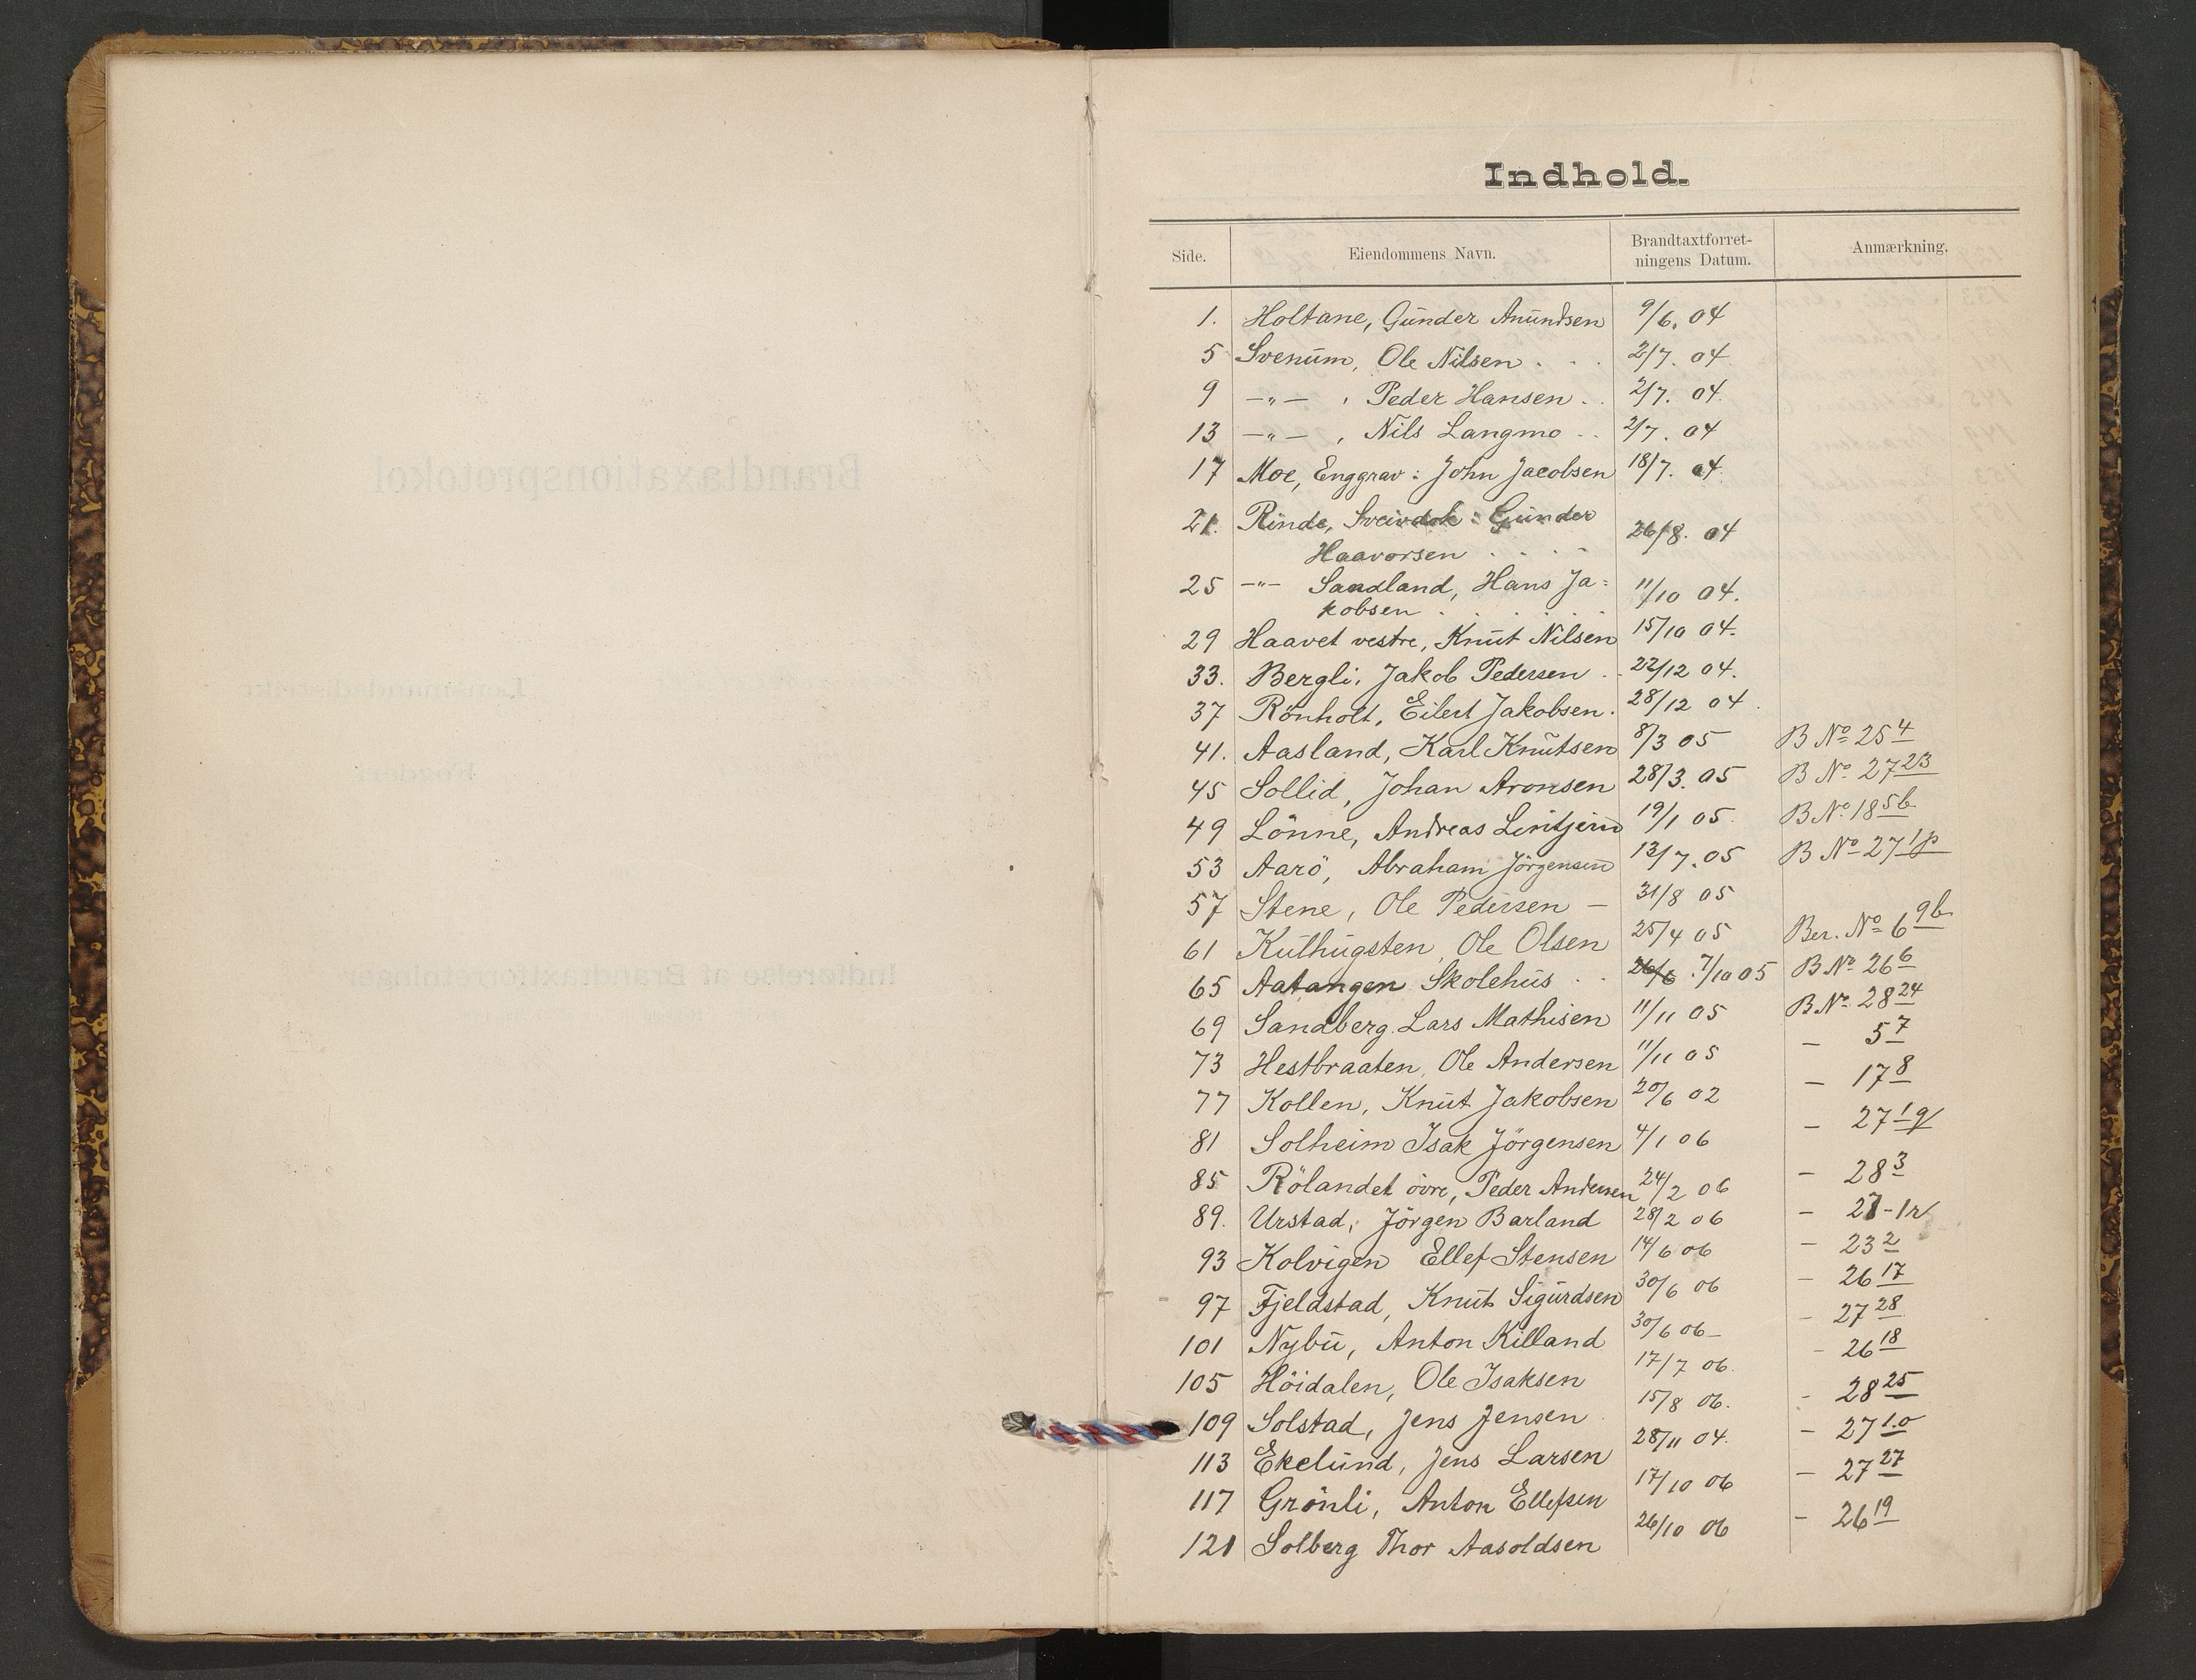 Indhold.
Side. Eiendommens Navn. Brandtaxtforret-ningens Datum. Anmærkning.
1. Holtane, Gunder Anundsen 9/6. 04
5 Svenum, Ole Nilsen . . . 2/7. 04
9 —„— , Peder Hansen . . 2/7. 04
13 —„— , Nils Langmo . . 2/7. 04
17 Moe, Enggrav: John Jacobsen 18/7. 04
21. Rinde, : Gunder
Haavorsen . . . . 26/8. 04
25 —„— Sandland, Hans Ja-
kobsen . . . . . 11/10 04.
29 Haavet vestre, Knut Nilsen 15/10 04.
33. Bergli, Jakob Pedersen . 22/12 04.
37 Rönholt, Eilert Jakobsen. 28/12 04.
41. Aasland, Karl Knutsen 8/3 05 B No 25 4
45 Sollid, Johan Aronsen 28/3. 05 B No 27 23
49 Lönne, Andreas Lintjern 19/1 05. B No 18 5b
53 Aarö, Abraham Jörgensen 13/7. 05 B No 27 1p
57 Stene, Ole Pedersen — 31/8 05
61 Kulhugsten, Ole Olsen 25/4 05 Ber. No 6 9b
65 Aatangen Skolehus . . 26/6 . 7/10 05 B No 26 6
69 Sandberg. Lars Mathisen 11/11 05 B No 28 24
73 Hestbraaten, Ole Andersen 11/11 05 — 5 7
77 Kollen, Knut Jakobsen 20/6 02 — 17 8
81 Solheim Isak Jörgensen 4/1 06 — 27 1q
85 Rölandet övre, Peder Andersen 24/2 06 — 28 3
89. Urstad, Jörgen Barland 28/2 06 — 27-1r
93 Kolvigen Ellef Stensen 14/6 06 — 23 2
97 Fjeldstad, Knut Sigurdsen 30/6 06 — 26 17
101 Nybu, Anton Killand 30/6 06 — 27 28
105 Höidalen, Ole Isaksen 17/7 06. — 26 18
109 Solstad, Jens Jensen 15/8 06. — 28 25
113 Ekelund, Jens Larsen 28/11 04. — 27 1.o
117 Grönli, Anton Ellefsen 17/10 06 — 27 27
121 Solberg Thor Aasoldsen 26/10 06 — 26 19